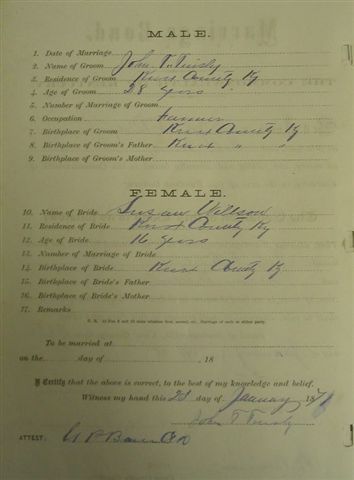 MALE.
1. Date of Marriage
2. Name of Groom John T.
3. Residence of Groom Knox County Ky
4. Age of Groom 28 years
5. Number of Marriage of Groom
6. Occupation Farmer
7. Birthplace of Groom Knox County Ky
8. Birthplace of Groom's Father Knox " "
9. Birthplace of Groom's Mother
FEMALE.
10. Name of Bride Susan Willson
11. Residence of Bride Knox County Ky
12. Age of Bride 16 years
13. Number of Marriage of Bride
14. Birthplace of Bride Knox County Ky
15. Birthplace of Bride's Father
16. Birthplace of Bride's Mother
17. Remarks
To be married at
on the day of , 18
I Certify that the above is correct, to the best of my knowledge and belief.
Witness my hand this 23 day of January 187
John T
ATTEST: